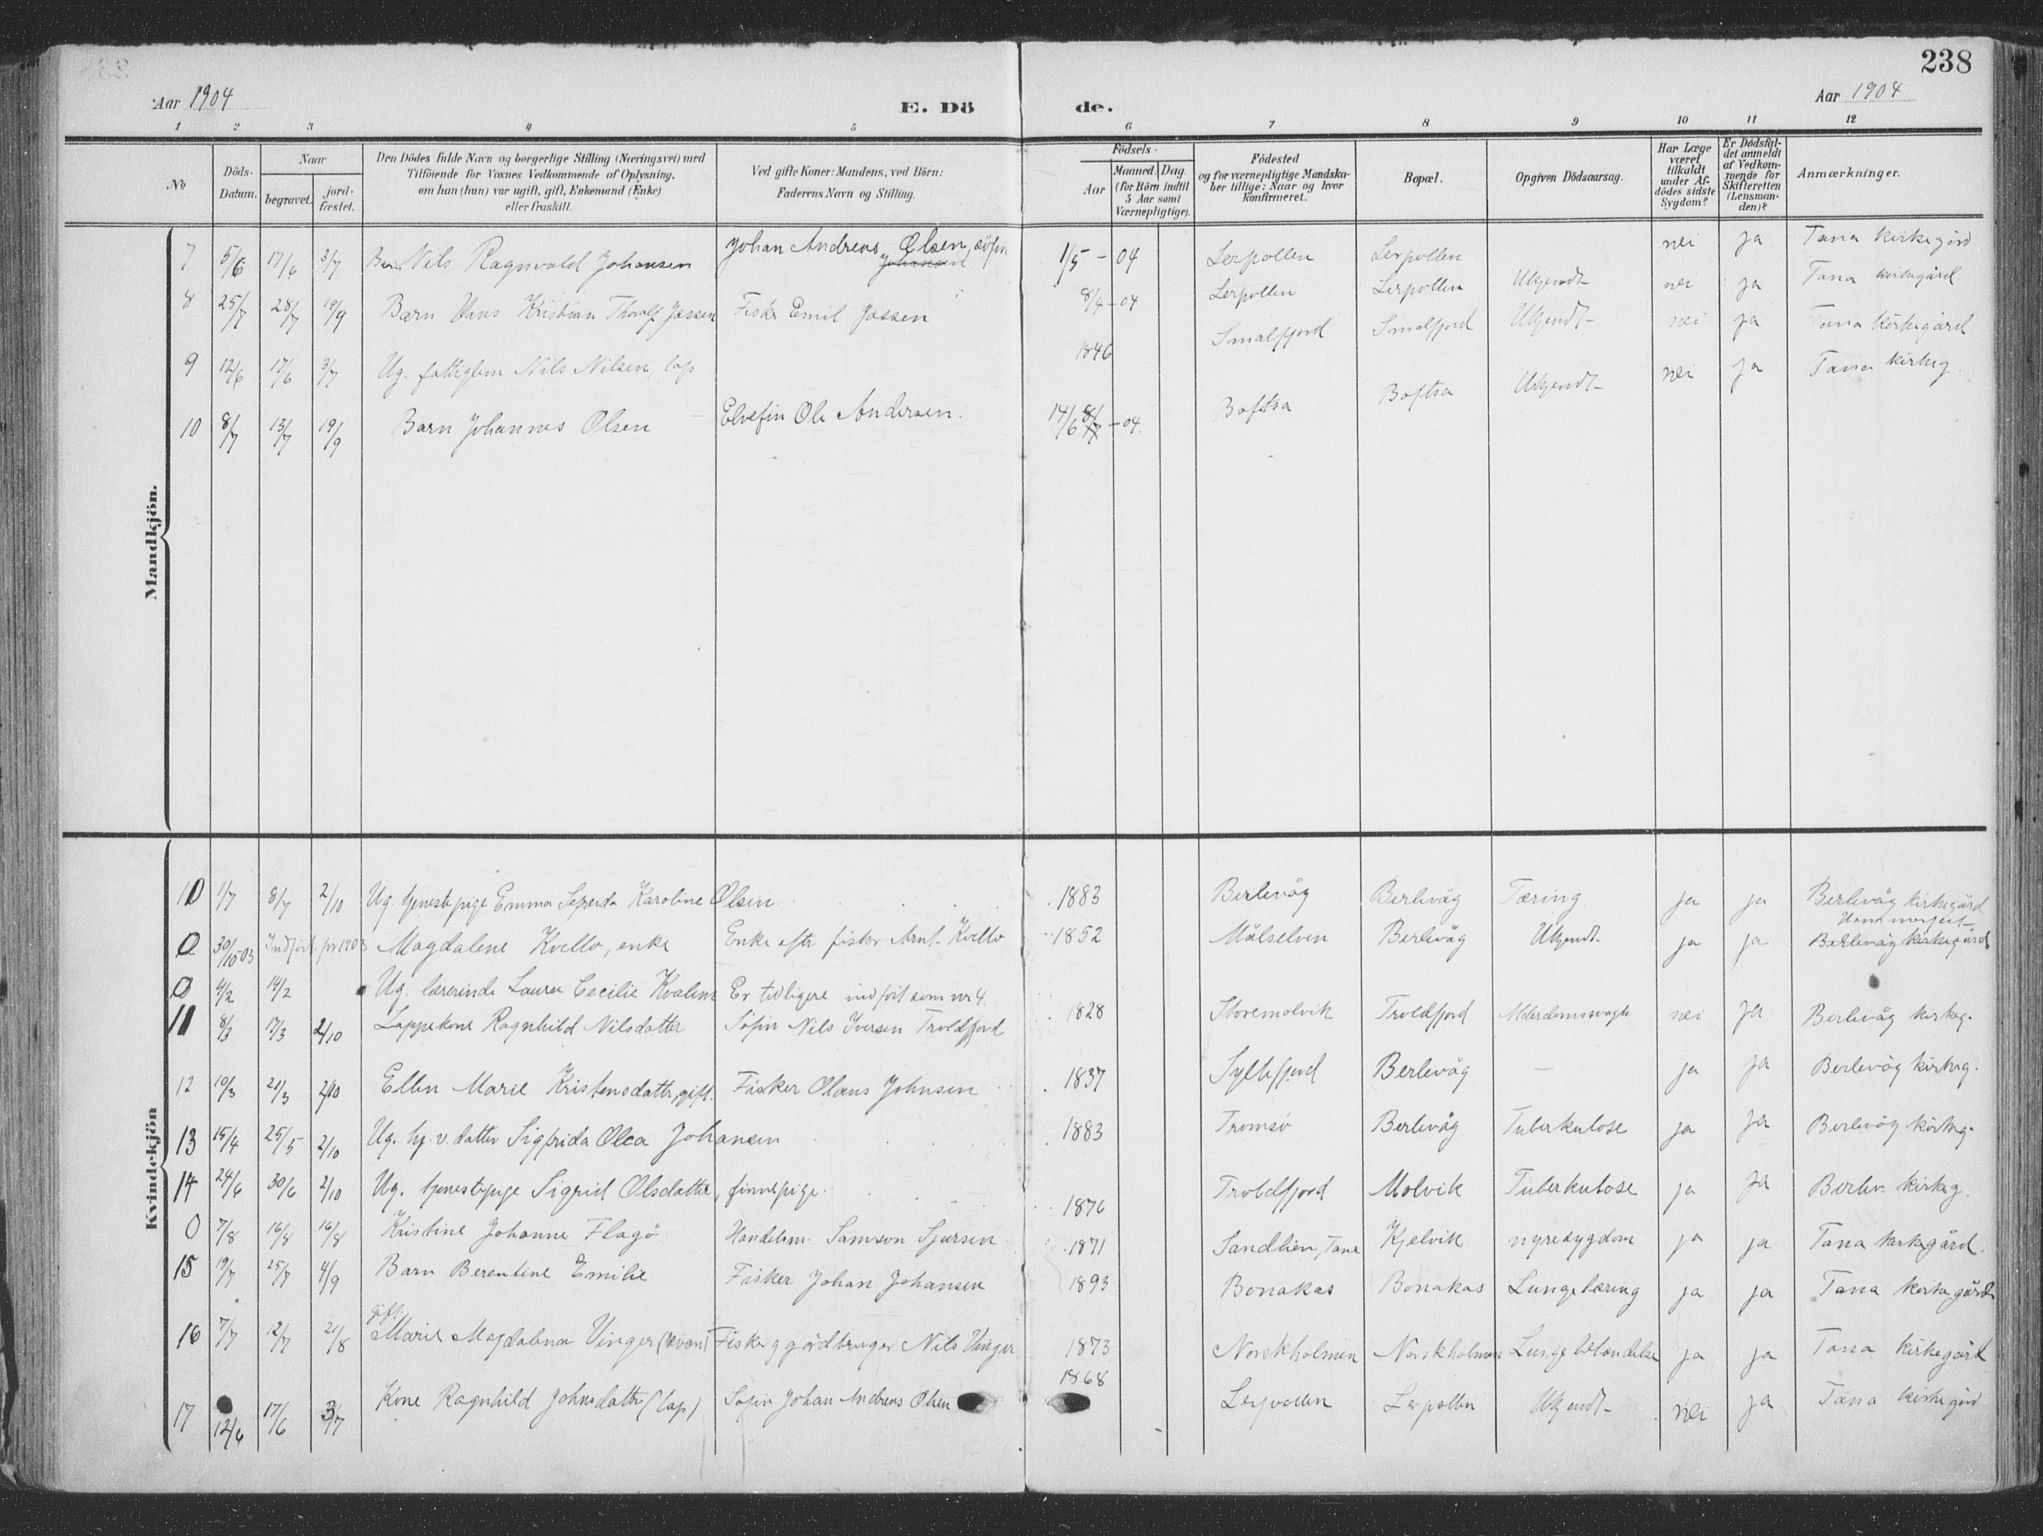 238
Aar 1904 E. Dö de. Aar 1904
1 2 3 4 5 6 7 8 9 10 11 12
No
Döds-Datum.
Naar
begravet.
jord-fæstet.
Den Dödes fulde Navn og borgerlige Stilling (Næringsvei) med
Tilföiende for Voxnes Vedkommende af Oplysning,
om han (hun) var ugift, gift, Enkemand (Enke)
eller fraskilt.
Ved gifte Koner: Mandens, ved Börn:
Faderens Navn og Stilling.
Födsels-
Aar
Maaned. Dag.
(for Börn indtil
5 Aar samt
Værnepligtige).
Födested
og for værnepligtige Mandska-
ber tillige: Naar og hvor
konfirmeret.
Bopæl.
Opgiven Dödsaarsag.
Har Læge
været
tilkaldt
under Af-
dödes sidste
Sygdom?
Er Dödsfal-
det anmeldt
af Vedkom-
mende for
Skifteretten
(Lensman-
den)?
Anmærkninger.
Mandkjön.
7 5/6 17/6 3/7 Barn Nils Ragnvald Johansen Johan Andreas Olsen, söfin Johansen 1/5 - 04 Lerpollen Lerpollen nei ja Tana kirkegård
8 25/7 28/7 19/9 Barn Hans Kristian Thoralf Jessen Fisker Emil Jessen 8/4 - 04 Lerpollen Lerpollen Ukjendt nei ja Tana kirkegård
9 12/6 17/6 3/7 Ug. fattiglem Nils Nilsen, lap 1846 Smalfjord Smalfjord Ukjendt nei ja Tana kirkegård
10 8/7 13/7 19/9 Barn Johannes Olsen Elvefin Ole Andersen. 14/6 8/7 - 04. Boftsa Boftsa Ukjendt nei ja Tana kirkeg.
Kvindekjön
10 1/7 8/7 2/10 Ug. tjenestepige Emma Karoline Olsen 1883 Berlevåg Berlevåg Tæring ja ja Berlevåg kirkegård
0 30/10-03 Indfört for 1903 Magdalene Kvello, enke Enke efter fisker Arnt Kvello 1852 Målselven Berlevåg Ukjendt ja ja Berlevåg kirkegård
0 4/2 14/2 Ug. lærerinde Laura Cecilie Kvalem Er tidligere indfört som nr 4.
11 8/3 17/3 2/10 Lappekone Ragnhild Nilsdatter Söfin Nils Iversen Troldfjord 1828 Storemolvik Troldfjord Alderdomssvagh nei ja Berlevåg kirkeg.
12 10/3 21/3 2/10 Ellen Marie Kristensdatter, gift. Fisker Olaus Johnsen 1837 Syltefjord Berlevåg - ja ja Berlevåg kirkeg.
13 15/4 25/5 2/10 Ug. hj. v. datter Sigfrida Olea Johansen 1883 Tromsö Berlevåg Tuberkulose ja ja Berlevåg kirkeg.
14 24/6 30/6 2/10 Ug. tjenestepige Sigrid Olsdatter, finnepige 1876 Troldfjord Molvik Tuberkulose ja ja Berlev. kirkeg.
0 7/8 16/8 16/8 Kristine Johanne Flagö Handelsm. Samson Sjursen 1871 Sandlien, Tana Kjelvik nyresygdom ja ja Tana kirkegård.
15 19/7 25/7 4/9 Barn Berentine Emilie Fisker Johan Johansen 1893 Bonakas Bonakas Lungetæring ja ja Tana kirkegård
16 7/7 12/7 21/8 gift. Marie Magdalena Vinger (kvæn) Fisker g gårdbruger Nils Vinger 1873 Norskholmen Norskholmen Lungebetændelse ja ja Tana kirkegård
17 12/6 17/6 3/7 Kone Ragnhild Johnsdatter (lap) Söfin Johan Andreas Olsen 1868 Lerpollen Lerpollen Ukjendt nei ja Tana kirkegård